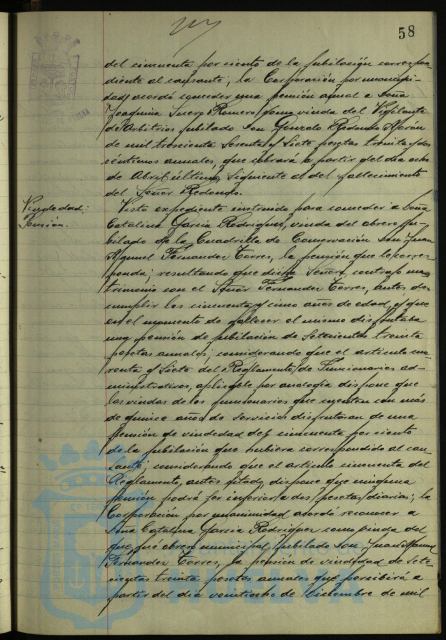 58
del cincuenta por ciento de la jubilación correspon-
diente al causante; la Corporación por unanimi-
dad acordó conceder una pensión anual a Doña
Joaquina Suero Romero, como viuda del Vigilante
de Arbitrios jubilado Don Gonzalo Redondo
de mil trescientas setenta y siete pesetas treinta y dos
céntimos anuales, que cobrará a partir del día ocho
de Abril último, siguiente al del fallecimiento
del Señor Redondo.
Viudedad:
Pensión.
Visto expediente instruido para conceder a Doña
Catalina García Rodríguez, viuda del obrero ju-
bilado de la Cuadrilla de Conservación Don Juan
Manuel Fernandez Torres, la pensión que le corres-
ponda; resultando que dicha Señora contrajo ma-
trimonio con el Señor Fernandez Torres, antes de
cumplir los cincuenta y cinco años de edad, y que
en el momento de fallecer el mismo disfrutaba
una pensión de jubilación de setecientas treinta
pesetas anuales; considerando que el artículo cua-
renta y siete del Reglamento de Funcionarios ad-
ministrativos, aplicable por analogía dispone que
las viudas de los funcionarios que cuenten con más
de quince años de servicios disfrutaran de una
pensión de viudedad del cincuenta por ciento
de la jubilación que hubiera correspondido al cau-
sante; considerando que el artículo cincuenta del
Reglamento, antes citado, dispone que ninguna
pensión podrá ser inferior a dos pesetas diarias; la
Corporación por unanimidad acordó reconocer a
Doña Catalina García Rodríguez como viuda del
que fue obrero municipal jubilado Don Juan Manuel
Fernandez Torres, la pensión de viudedad de sete-
cientas treinta pesetas anuales que percibirá a
partir del día veintiocho de Diciembre de mil